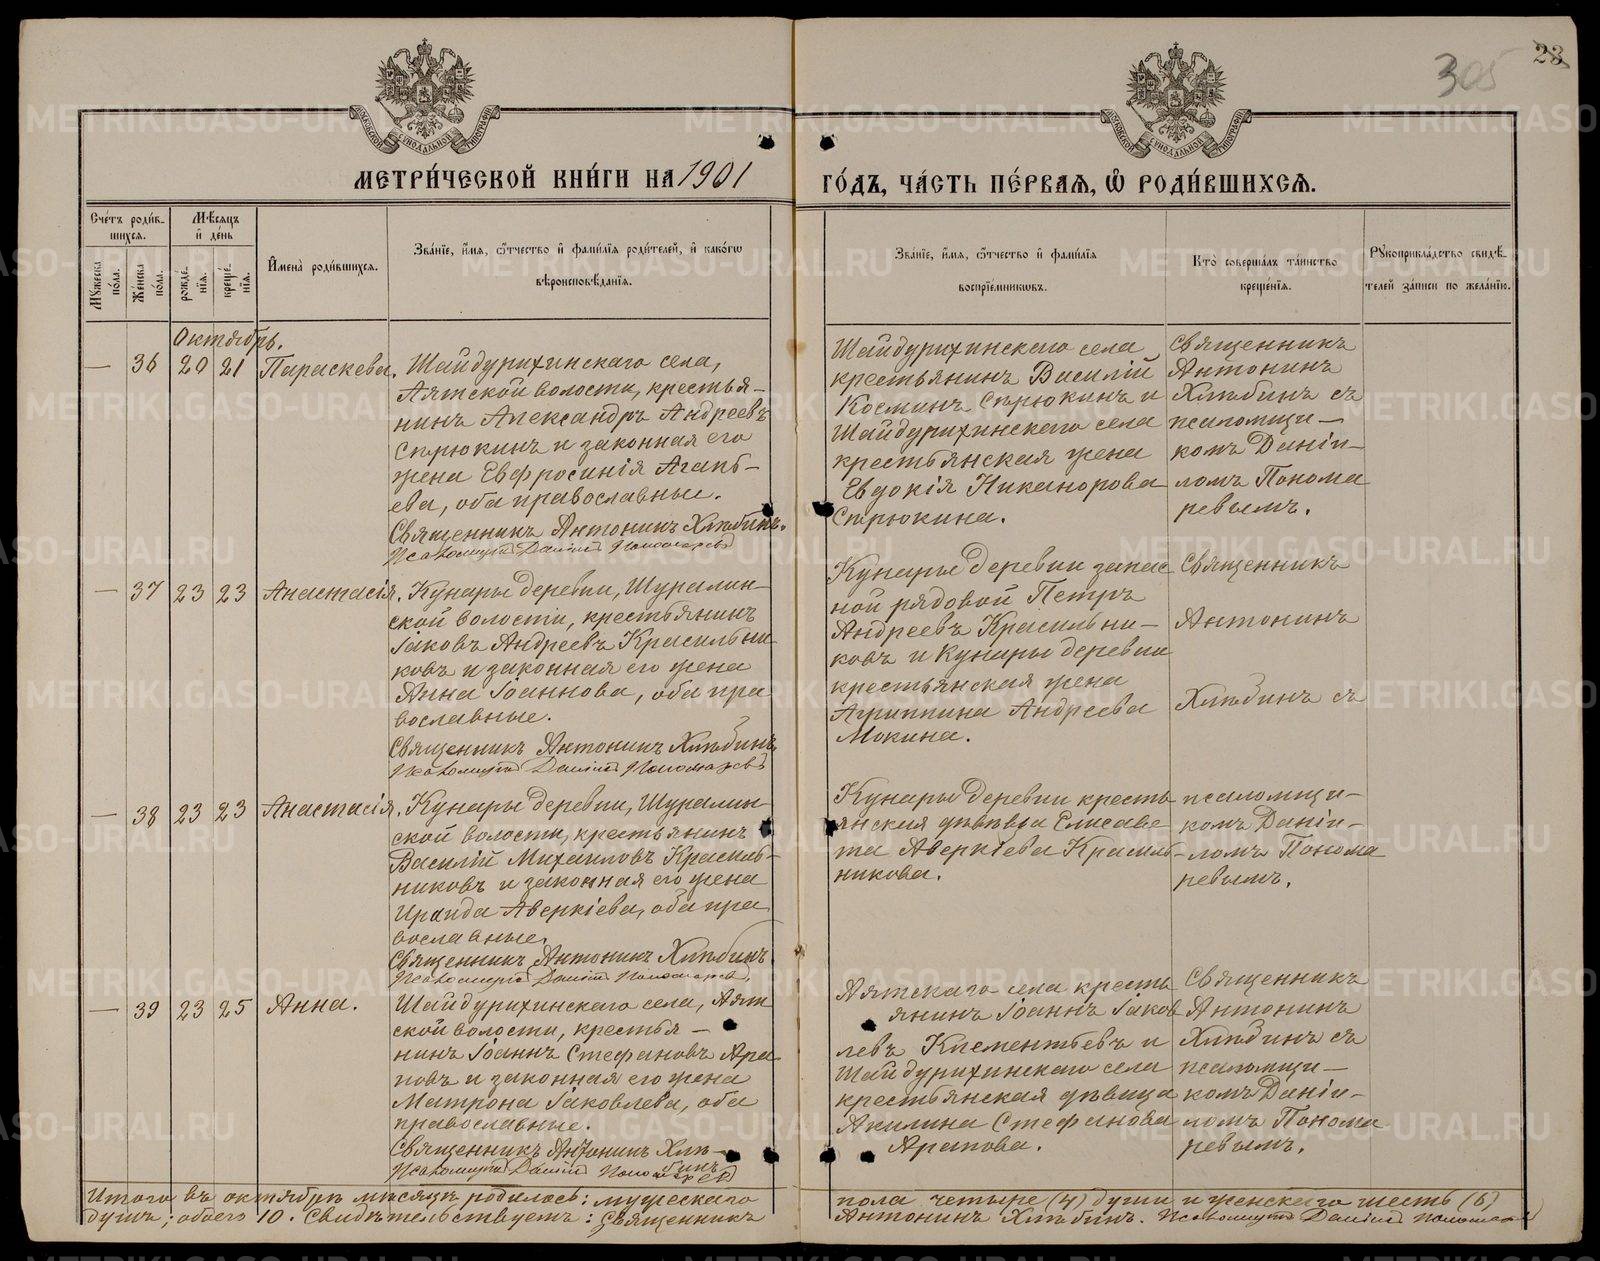 305
23
МЕТРИ́ЧЕСКОЙ КНИ́ГИ НА 1901 ГО́ДЪ, ЧА́СТЬ ПЕ́РВАЯ, Ѡ҆ РОДИ́ВШИХСЯ.
Сче́тъ роди́в-
шихся.
Мѣсяцъ
и҆ де́нь
И҆мена̀ роди́вшихся.
Зва́нїе, и҆́мя, ѻ҆́тчество и҆ фами́лїя роди́телей, и҆ како́гѡ
вѣроисповѣ́данїя.
Зва́нїе, и҆́мя, ѻ҆́тчество и҆ фами́лїя
воспрїе́мникѡвъ.
Кто̀ соверша́лъ та́инство
креще́нїя.
Рꙋкоприкла́дство свидѣ́-
телей за́писи по жела́нїю.
Мꙋ́жеска
по́ла.
Же́нска
по́ла.
рожде́-
нїя.
креще́-
нїя.
Октябрь.
— 36 20 21 Параскева.
Шайдурихинскаго села,
Аятской волости, крестья-
нинъ Александръ Андреевъ
Стрюкинъ и законная его
жена Евфросинія Агапі-
ева, оба православные.
Священникъ Антонинъ Хлѣбинъ.
Псаломщикъ Даніилъ Пономаревъ
Шайдурихинскаго села
крестьянинъ Василій
Косминъ Стрюкинъ и
Шайдурихинскаго села
крестьянская жена
Евдокія Никанорова
Стрюкина.
Священникъ
Антонинъ
Хлѣбинъ съ
псаломщи-
комъ Даніи-
ломъ Понома
ревымъ.
— 37 23 23 Анастасія.
Кунары деревни, Шуралин-
ской волости, крестьянинъ
Іаковъ Андреевъ Красильни
ковъ и законная его жена
Анна Іоаннова, оба пра
вославные.
Священникъ Антонинъ Хлѣбинъ
Псаломщикъ Даніилъ Пономаревъ
Кунары деревни запас
ной рядовой Петръ
Андреевъ Красильни-
ковъ и Кунары деревни
крестьянская жена
Агриппина Андреева
Мокина.
Священникъ
Антонинъ
Хлѣбинъ съ
— 38 23 23 Анастасія.
Кунары деревни, Шуралин-
ской волости, крестьянинъ
Василій Михаиловъ Красиль-
никовъ и законная его жена
Ираида Аверкіева, оба пра
вославные.
Священникъ Антонинъ Хлѣбинъ
Псаломщикъ Даніилъ Пономаревъ
Кунары деревни кресть
янская дѣвица Елисаве
та Аверкіева Красиль-
никова.
псаломщи-
комъ Даніи-
ломъ Понома
ревымъ.
— 39 23 25 Анна.
Шайдурихинскаго села, Аят
ской волости, крестья-
нинъ Іоаннъ Стефановъ Ара
повъ и законная его жена
Матрона Іаковлева, оба
православные.
Священникъ Антонинъ Хлѣ-
бинъ
Псаломщикъ Даніилъ Пономаревъ
Аятскаго села кресть
янинъ Іоаннъ Іаков
левъ Клементьевъ и
Шайдурихинскаго села
крестьянская дѣвица
Акилина Стефанова
Арапова.
Священникъ
Антонинъ
Хлѣбинъ съ
псаломщи-
комъ Даніи-
ломъ Понома
ревымъ.
Итого въ октябрѣ мѣсяцѣ родилось: мужескаго пола четыре (4) души и женскаго шесть (6)
душъ; обоего 10. Свидѣтельствуемъ: Священникъ Антонинъ Хлѣбинъ. Псаломщикъ Даніилъ Пономаревъ
METRIKI.GASO-URAL.RU